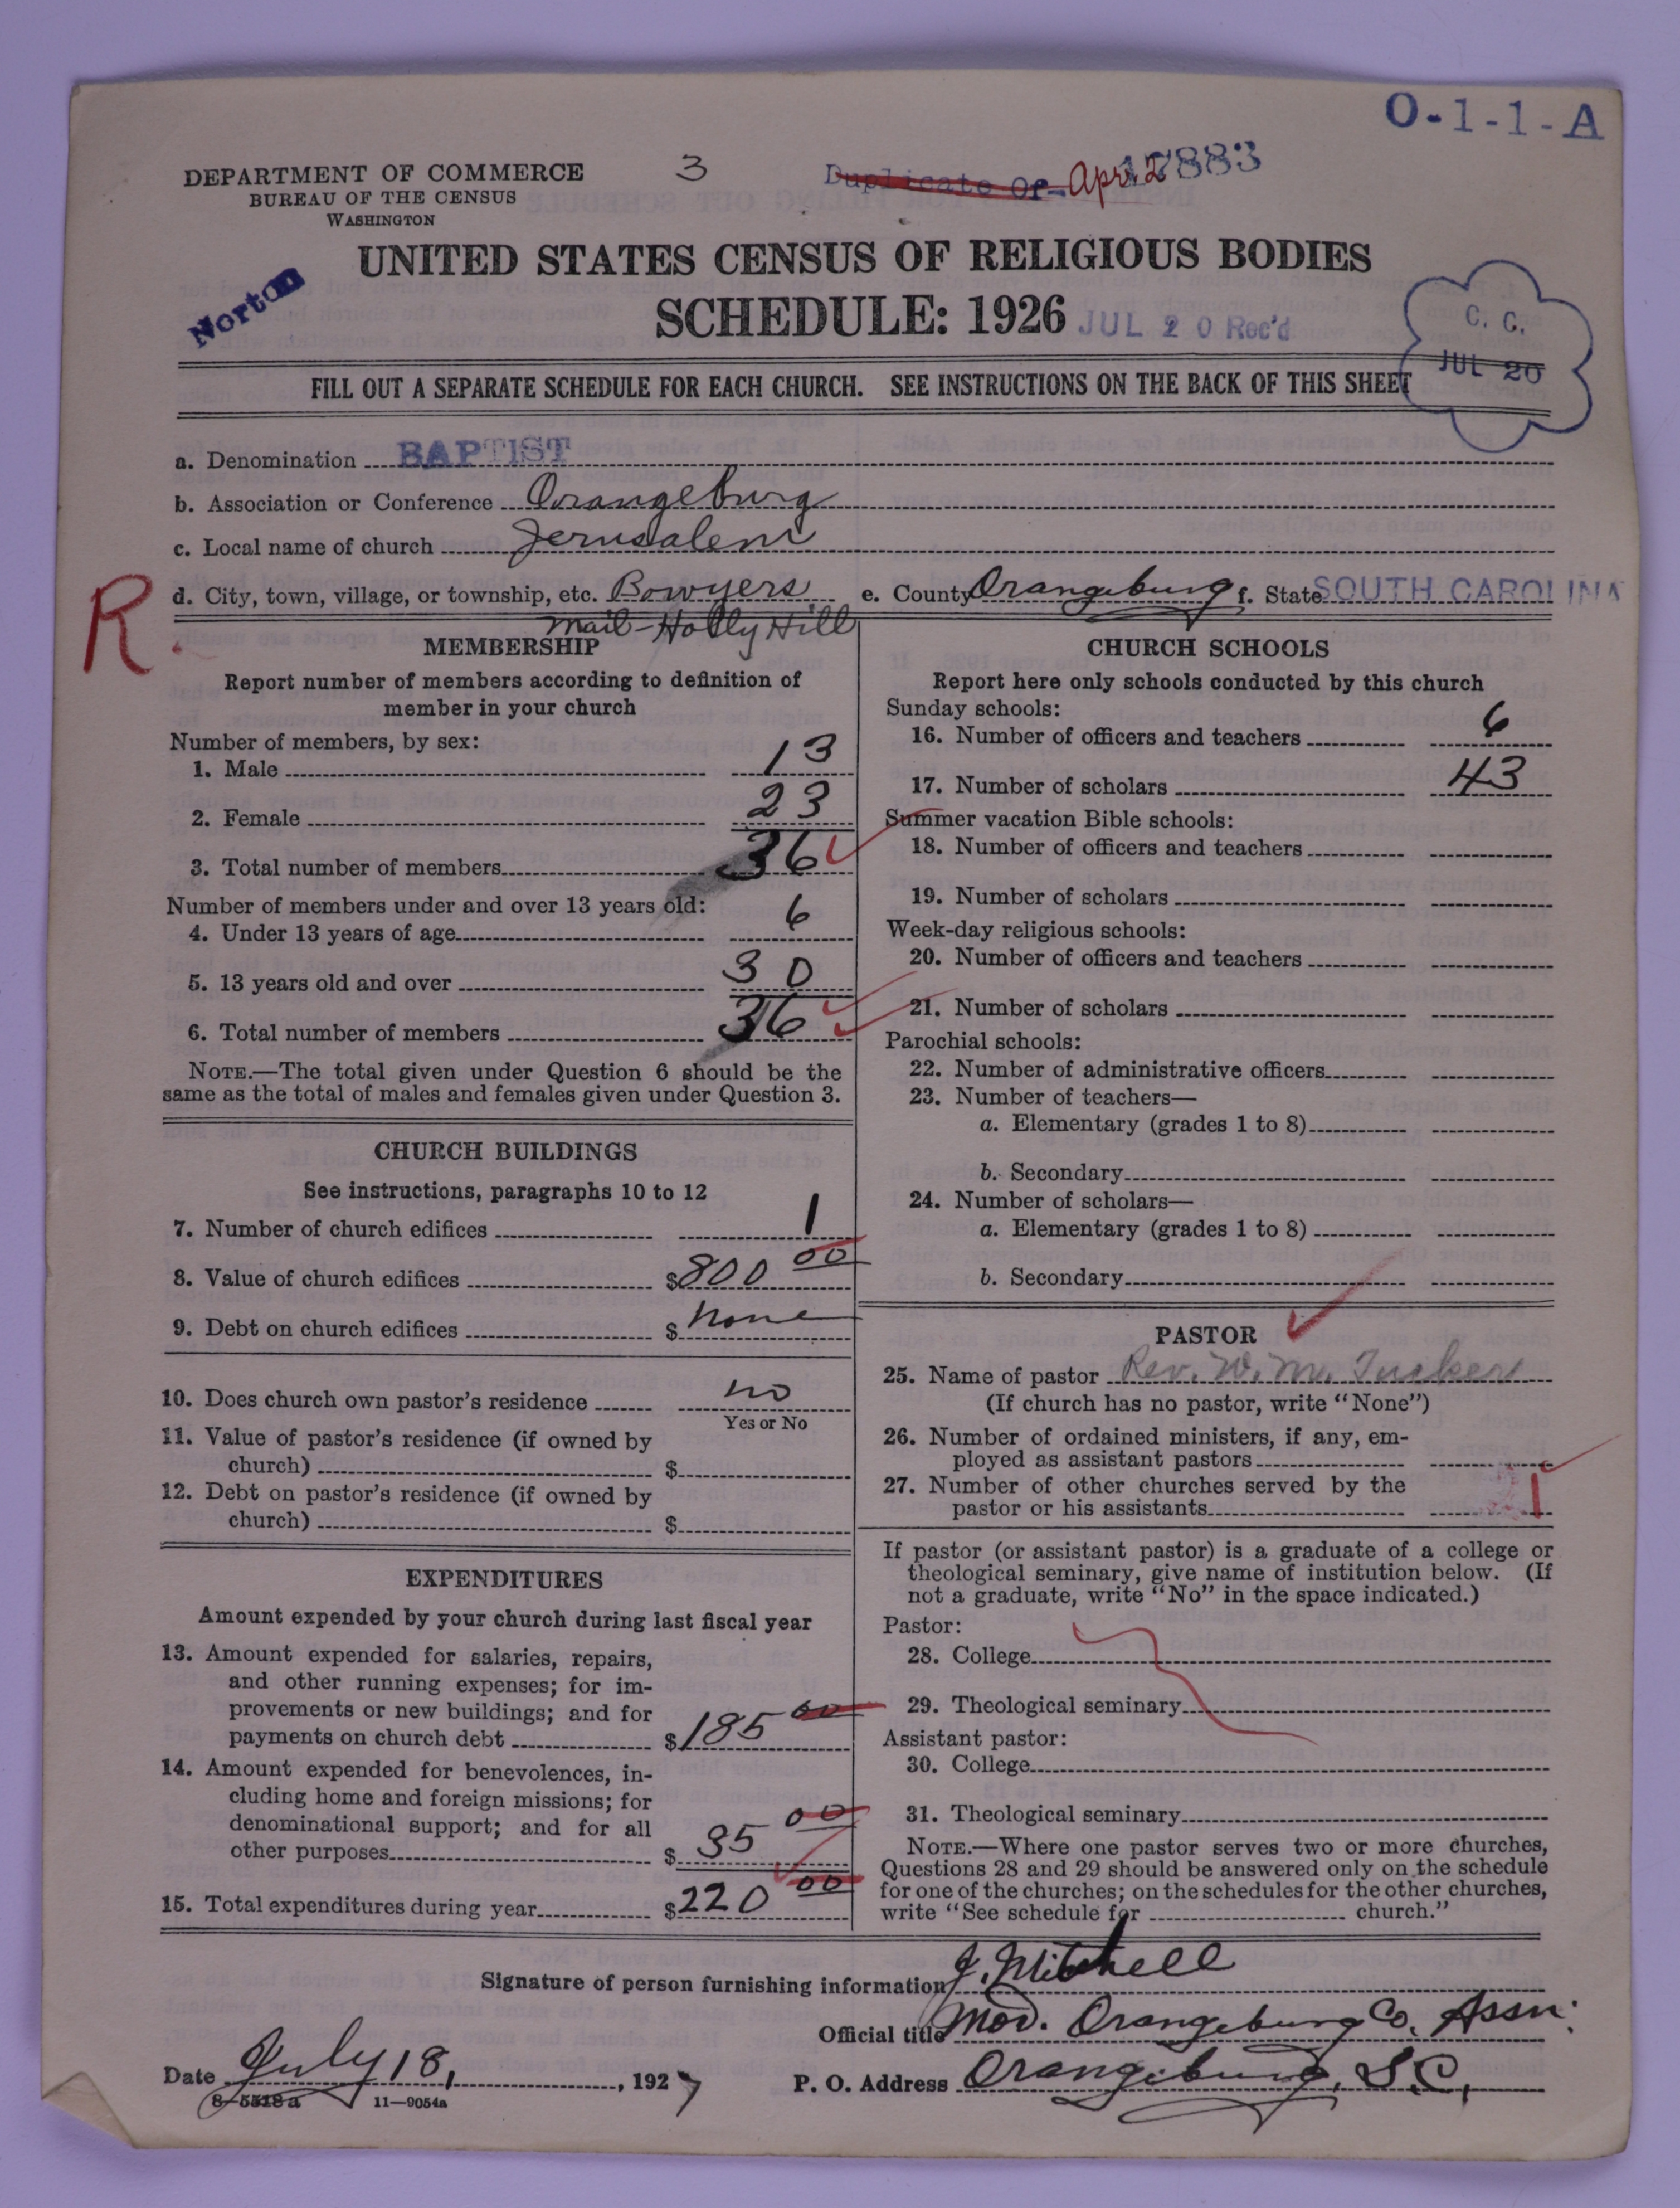 O-1-1-A
DEPARTMENT OF COMMERCE
BUREAU OF THE CENSUS
WASHINGTON
3
Duplicate Of Apr. 2
17883
UNITED STATES CENSUS OF RELIGIOUS BODIES
SCHEDULE: 1926
JUL 20 Rec'd
Norton
C. C.
JUL 20
FILL OUT A SEPARATE SCHEDULE FOR EACH CHURCH. SEE INSTRUCTIONS ON THE BACK OF THIS SHEET
a. Denomination BAPTIST
b. Association or Conference Orangeburg
c. Local name of church Jerusalem
d. City, town, village, or township, etc. Bowyers e. County Orangeburg f. State SOUTH CAROLINA
mail-Holly Hill
R.
MEMBERSHIP
Report number of members according to definition of
member in your church
Number of members, by sex:
1. Male 13
2. Female 23
3. Total number of members 36
Number of members under and over 13 years old:
4. Under 13 years of age 6
5. 13 years old and over 30
6. Total number of members 36
NOTE.—The total given under Question 6 should be the
same as the total of males and females given under Question 3.
CHURCH BUILDINGS
See instructions, paragraphs 10 to 12
7. Number of church edifices 1
8. Value of church edifices $800 00
9. Debt on church edifices $ none
10. Does church own pastor's residence no
Yes or No
11. Value of pastor's residence (if owned by
church) $
12. Debt on pastor's residence (if owned by
church) $
EXPENDITURES
Amount expended by your church during last fiscal year
13. Amount expended for salaries, repairs,
and other running expenses; for im-
provements or new buildings; and for
payments on church debt $185 00
14. Amount expended for benevolences, in-
cluding home and foreign missions; for
denominational support; and for all
other purposes $ 35 00
15. Total expenditures during year $220 00
CHURCH SCHOOLS
Report here only schools conducted by this church
Sunday schools:
16. Number of officers and teachers 6
17. Number of scholars 43
Summer vacation Bible schools:
18. Number of officers and teachers
19. Number of scholars
Week-day religious schools:
20. Number of officers and teachers
21. Number of scholars
Parochial schools:
22. Number of administrative officers
23. Number of teachers—
a. Elementary (grades 1 to 8)
b. Secondary
24. Number of scholars—
a. Elementary (grades 1 to 8)
b. Secondary
PASTOR
25. Name of pastor Rev. W. M. Tucker
(If church has no pastor, write "None")
26. Number of ordained ministers, if any, em-
ployed as assistant pastors
27. Number of other churches served by the
pastor or his assistants 1
If pastor (or assistant pastor) is a graduate of a college or
theological seminary, give name of institution below. (If
not a graduate, write "No" in the space indicated.)
Pastor:
28. College
29. Theological seminary
Assistant pastor:
30. College
31. Theological seminary
NOTE.—Where one pastor serves two or more churches,
Questions 28 and 29 should be answered only on the schedule
for one of the churches; on the schedules for the other churches,
write "See schedule for church."
Signature of person furnishing information J. Mitchell
Official title Mod. Orangeburg Co. Assn.
Date July 18, 1927
P. O. Address Orangeburg, S.C.
8-5518a 11—9054a